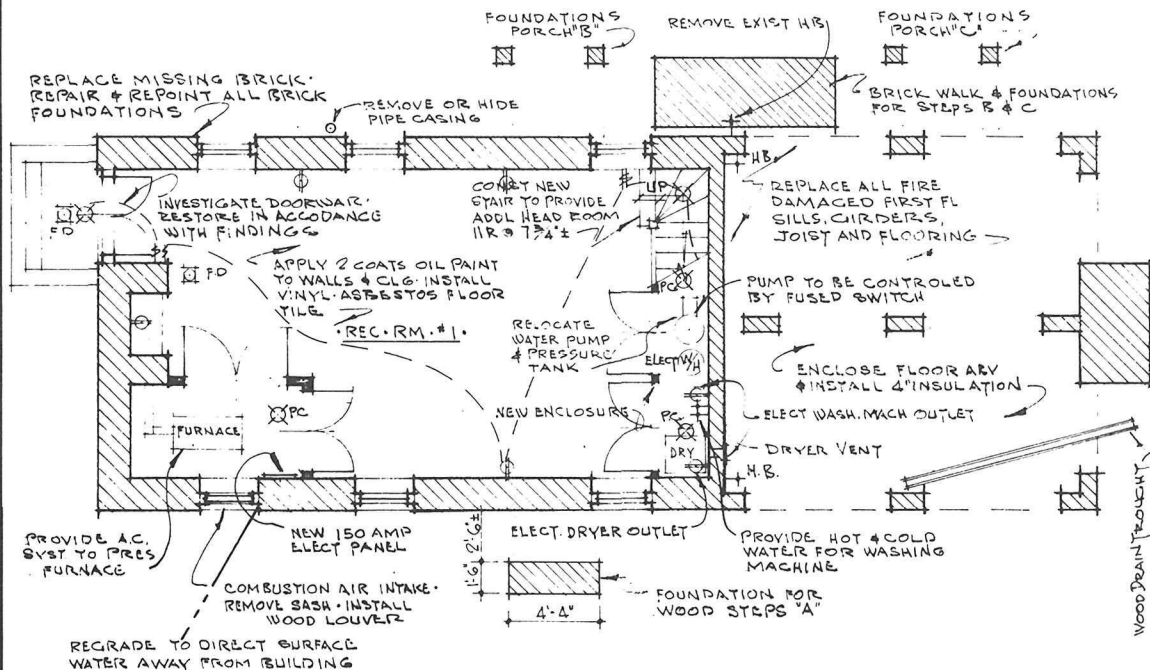 FOUNDATIONS
PORCH "B"
REMOVE EXIST HB
FOUNDATIONS
PORCH "C"
REPLACE MISSING BRICK·
REPAIR & REPOINT ALL BRICK
FOUNDATIONS
REMOVE OR HIDE
PIPE CASING
BRICK WALK & FOUNDATIONS
FOR STEPS B & C
HB.
INVESTIGATE DOORWAR·
RESTORE IN ACCODANCE
WITH FINDINGS
UP
STAIR TO PROVIDE
ADDL HEAD ROOM
11R @ 7 3/4" ±
REPLACE ALL FIRE
DAMAGED FIRST FL
SILLS, GIRDERS,
JOIST AND FLOORING
F.D
F.D
APPLY 2 COATS OIL PAINT
TO WALLS & CLG· INSTALL
VINYL·ASBESTOS FLOOR
TILE
·REC·RM·#1·
PC
PUMP TO BE CONTROLED
BY FUSED SWITCH
RELOCATE
WATER PUMP
& PRESSURE
TANK
ELECT W/H
ENCLOSE FLOOR ABV
& INSTALL 4" INSULATION
NEW ENCLOSURE
ELECT WASH. MACH OUTLET
PC
PC
FURNACE
DRY
DRYER VENT
H.B.
PROVIDE A.C.
SYST TO PRES
FURNACE
NEW 150 AMP
ELECT PANEL
ELECT. DRYER OUTLET
PROVIDE HOT & COLD
WATER FOR WASHING
MACHINE
2'-6"±
1'-6"
4'-4"
COMBUSTION AIR INTAKE·
REMOVE SASH · INSTALL
WOOD LOUVER
FOUNDATION FOR
WOOD STEPS "A"
REGRADE TO DIRECT SURFACE
WATER AWAY FROM BUILDING
WOOD DRAIN TROUGHT